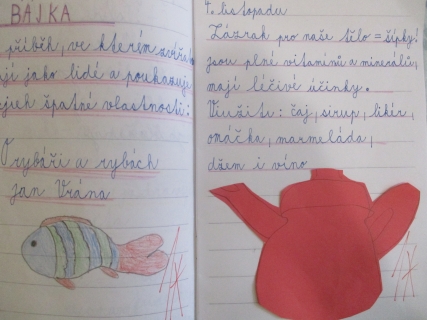 BAJKA
příběh, ve kterém zvířata
ají jako lidé a poukazuje
jejich špatné vlastnosti.
O rybáři a rybách
jan Vrána
4. listopadu
Zázrak pro naše tělo = šípky!
jsou plné vitamínů a minerálů,
mají léčivé účinky.
Využití: čaj, sirup, likér,
omáčka, marmeláda,
džem i víno